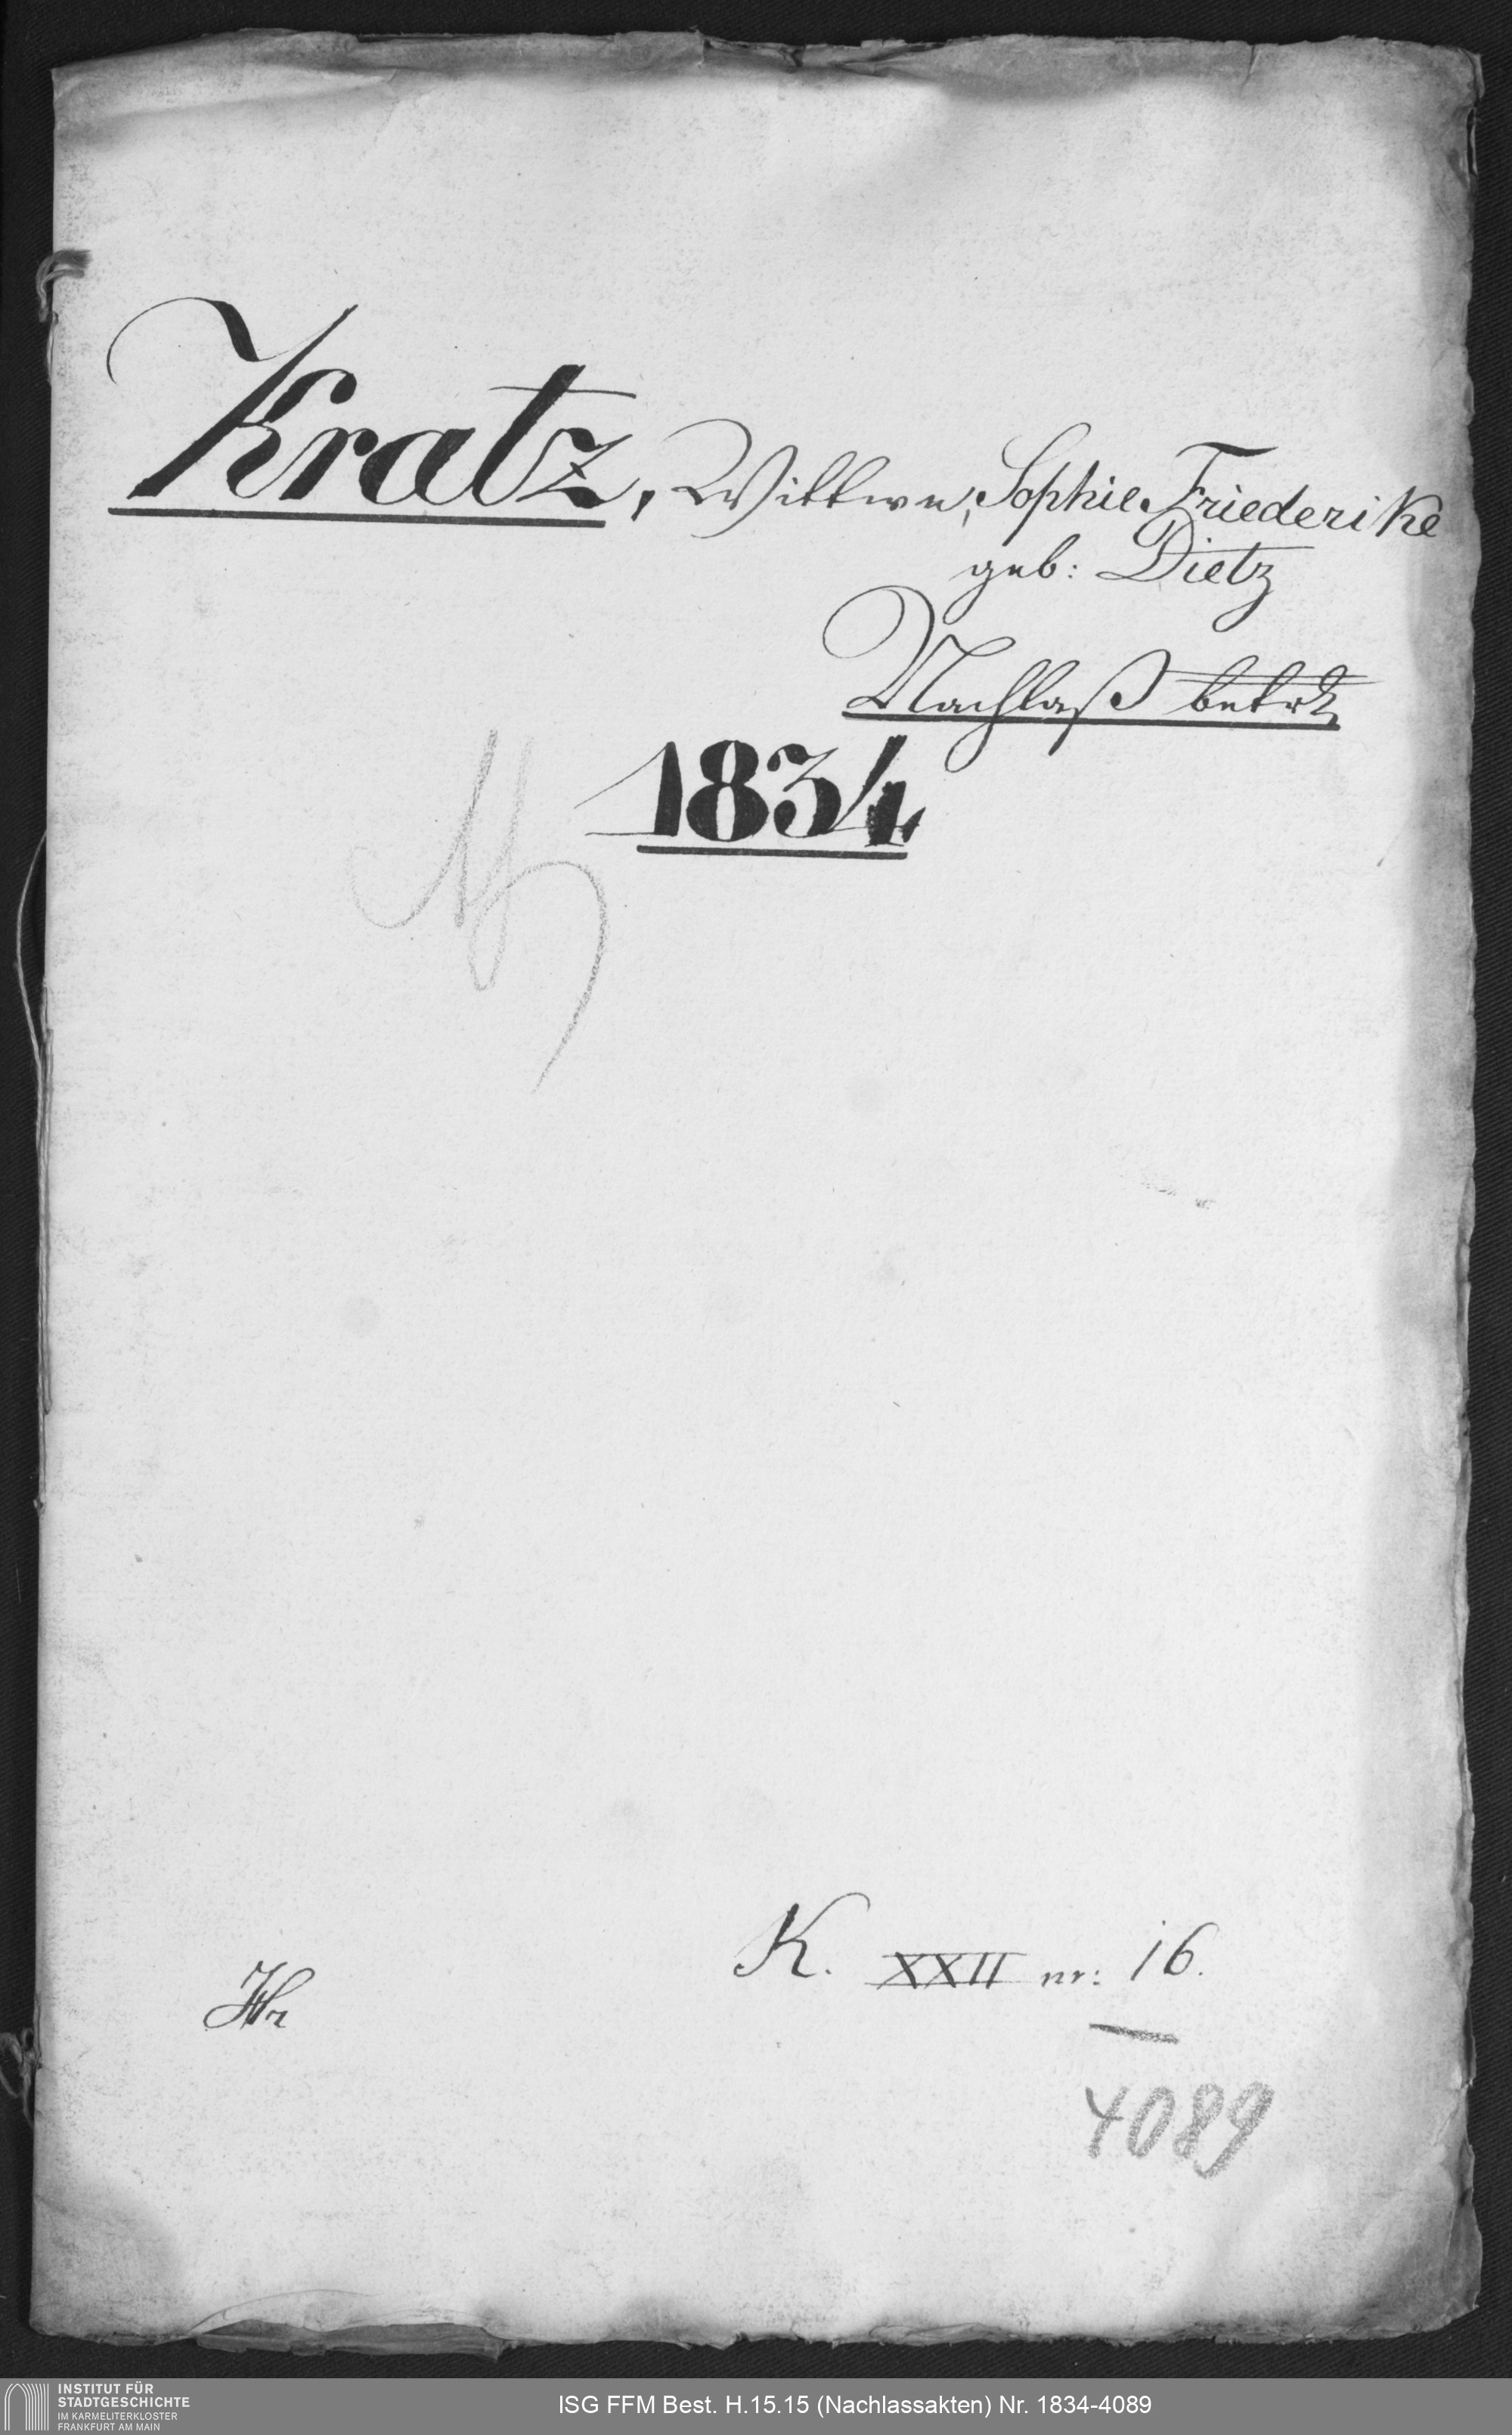 Kratz, Wittwe, Sophie Friederike
geb: Dietz
Nachlaß betr.
1834
K. XXII nr: 16.
4089
INSTITUT FÜR
STADTGESCHICHTE
IM KARMELITERKLOSTER
FRANKFURT AM MAIN
ISG FFM Best. H.15.15 (Nachlassakten) Nr. 1834-4089